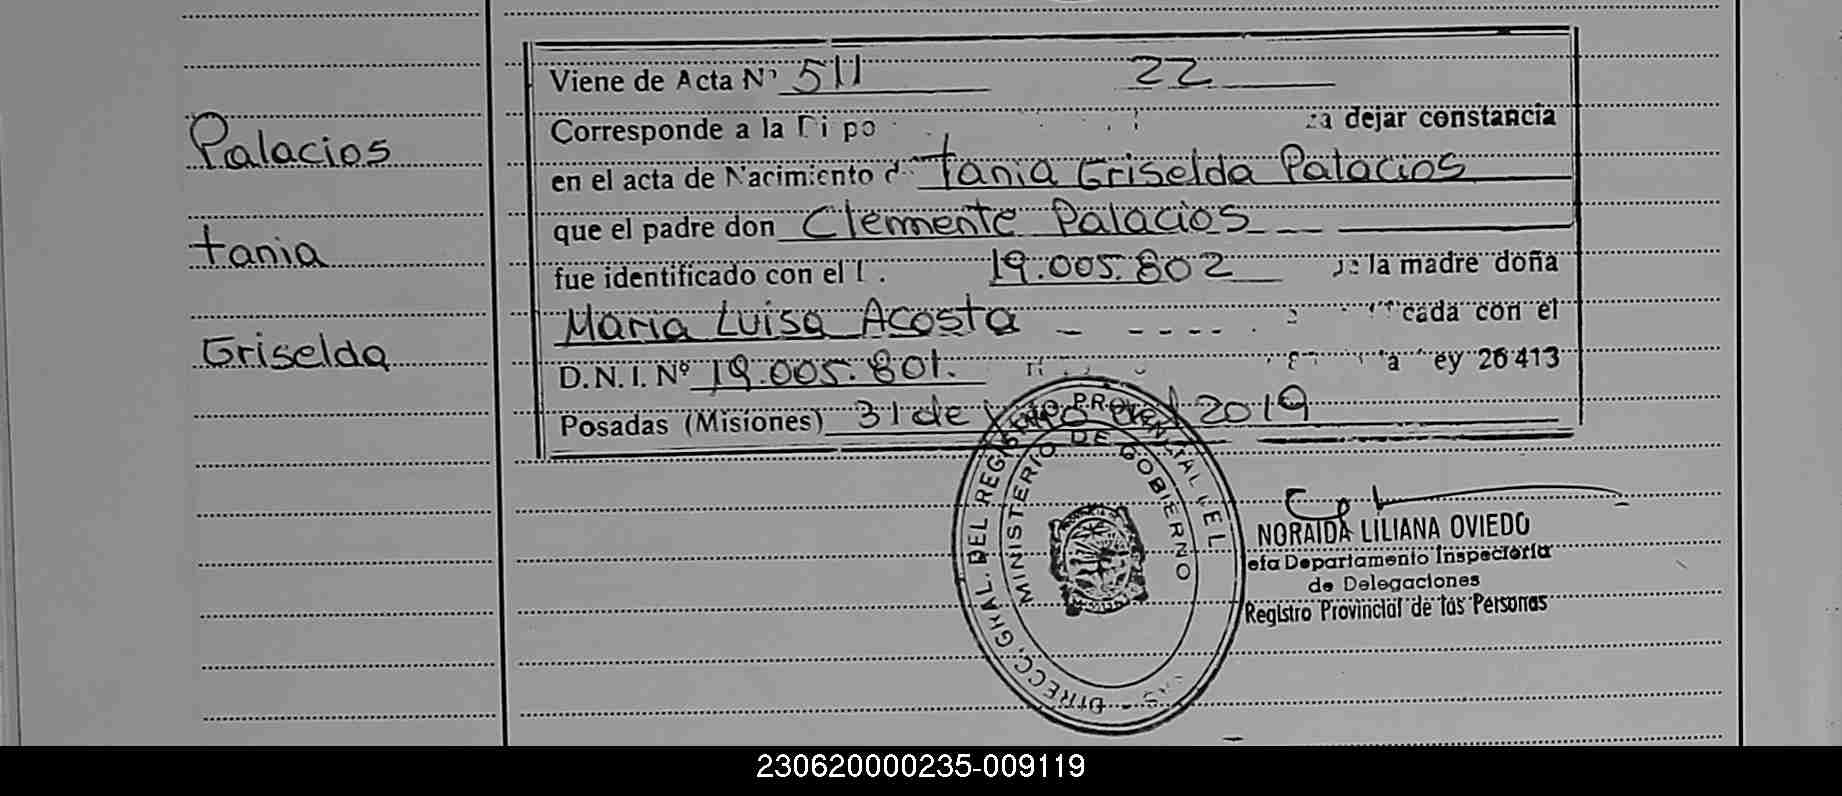 Palacios
tania
Griselda
Viene de Acta Nº 511 22
Corresponde a la dejar constancia
en el acta de Nacimiento d tania Griselda Palacios
que el padre don Clemente Palacios
fue identificado con el 19.005.802 la madre doña
Maria Luisa Acosta cada con el
D.N.I. Nº 19.005.801. ey 26413
Posadas (Misiones) 31 de 2019
DIRECC. GRAL. DEL REGISTRO PROVINCIAL DE L
MINISTERIO DE GOBIERNO
NORAIDA LILIANA OVIEDO
efa Departamento Inspectoria
de Delegaciones
Registro Provincial de las Personas
230620000235-009119